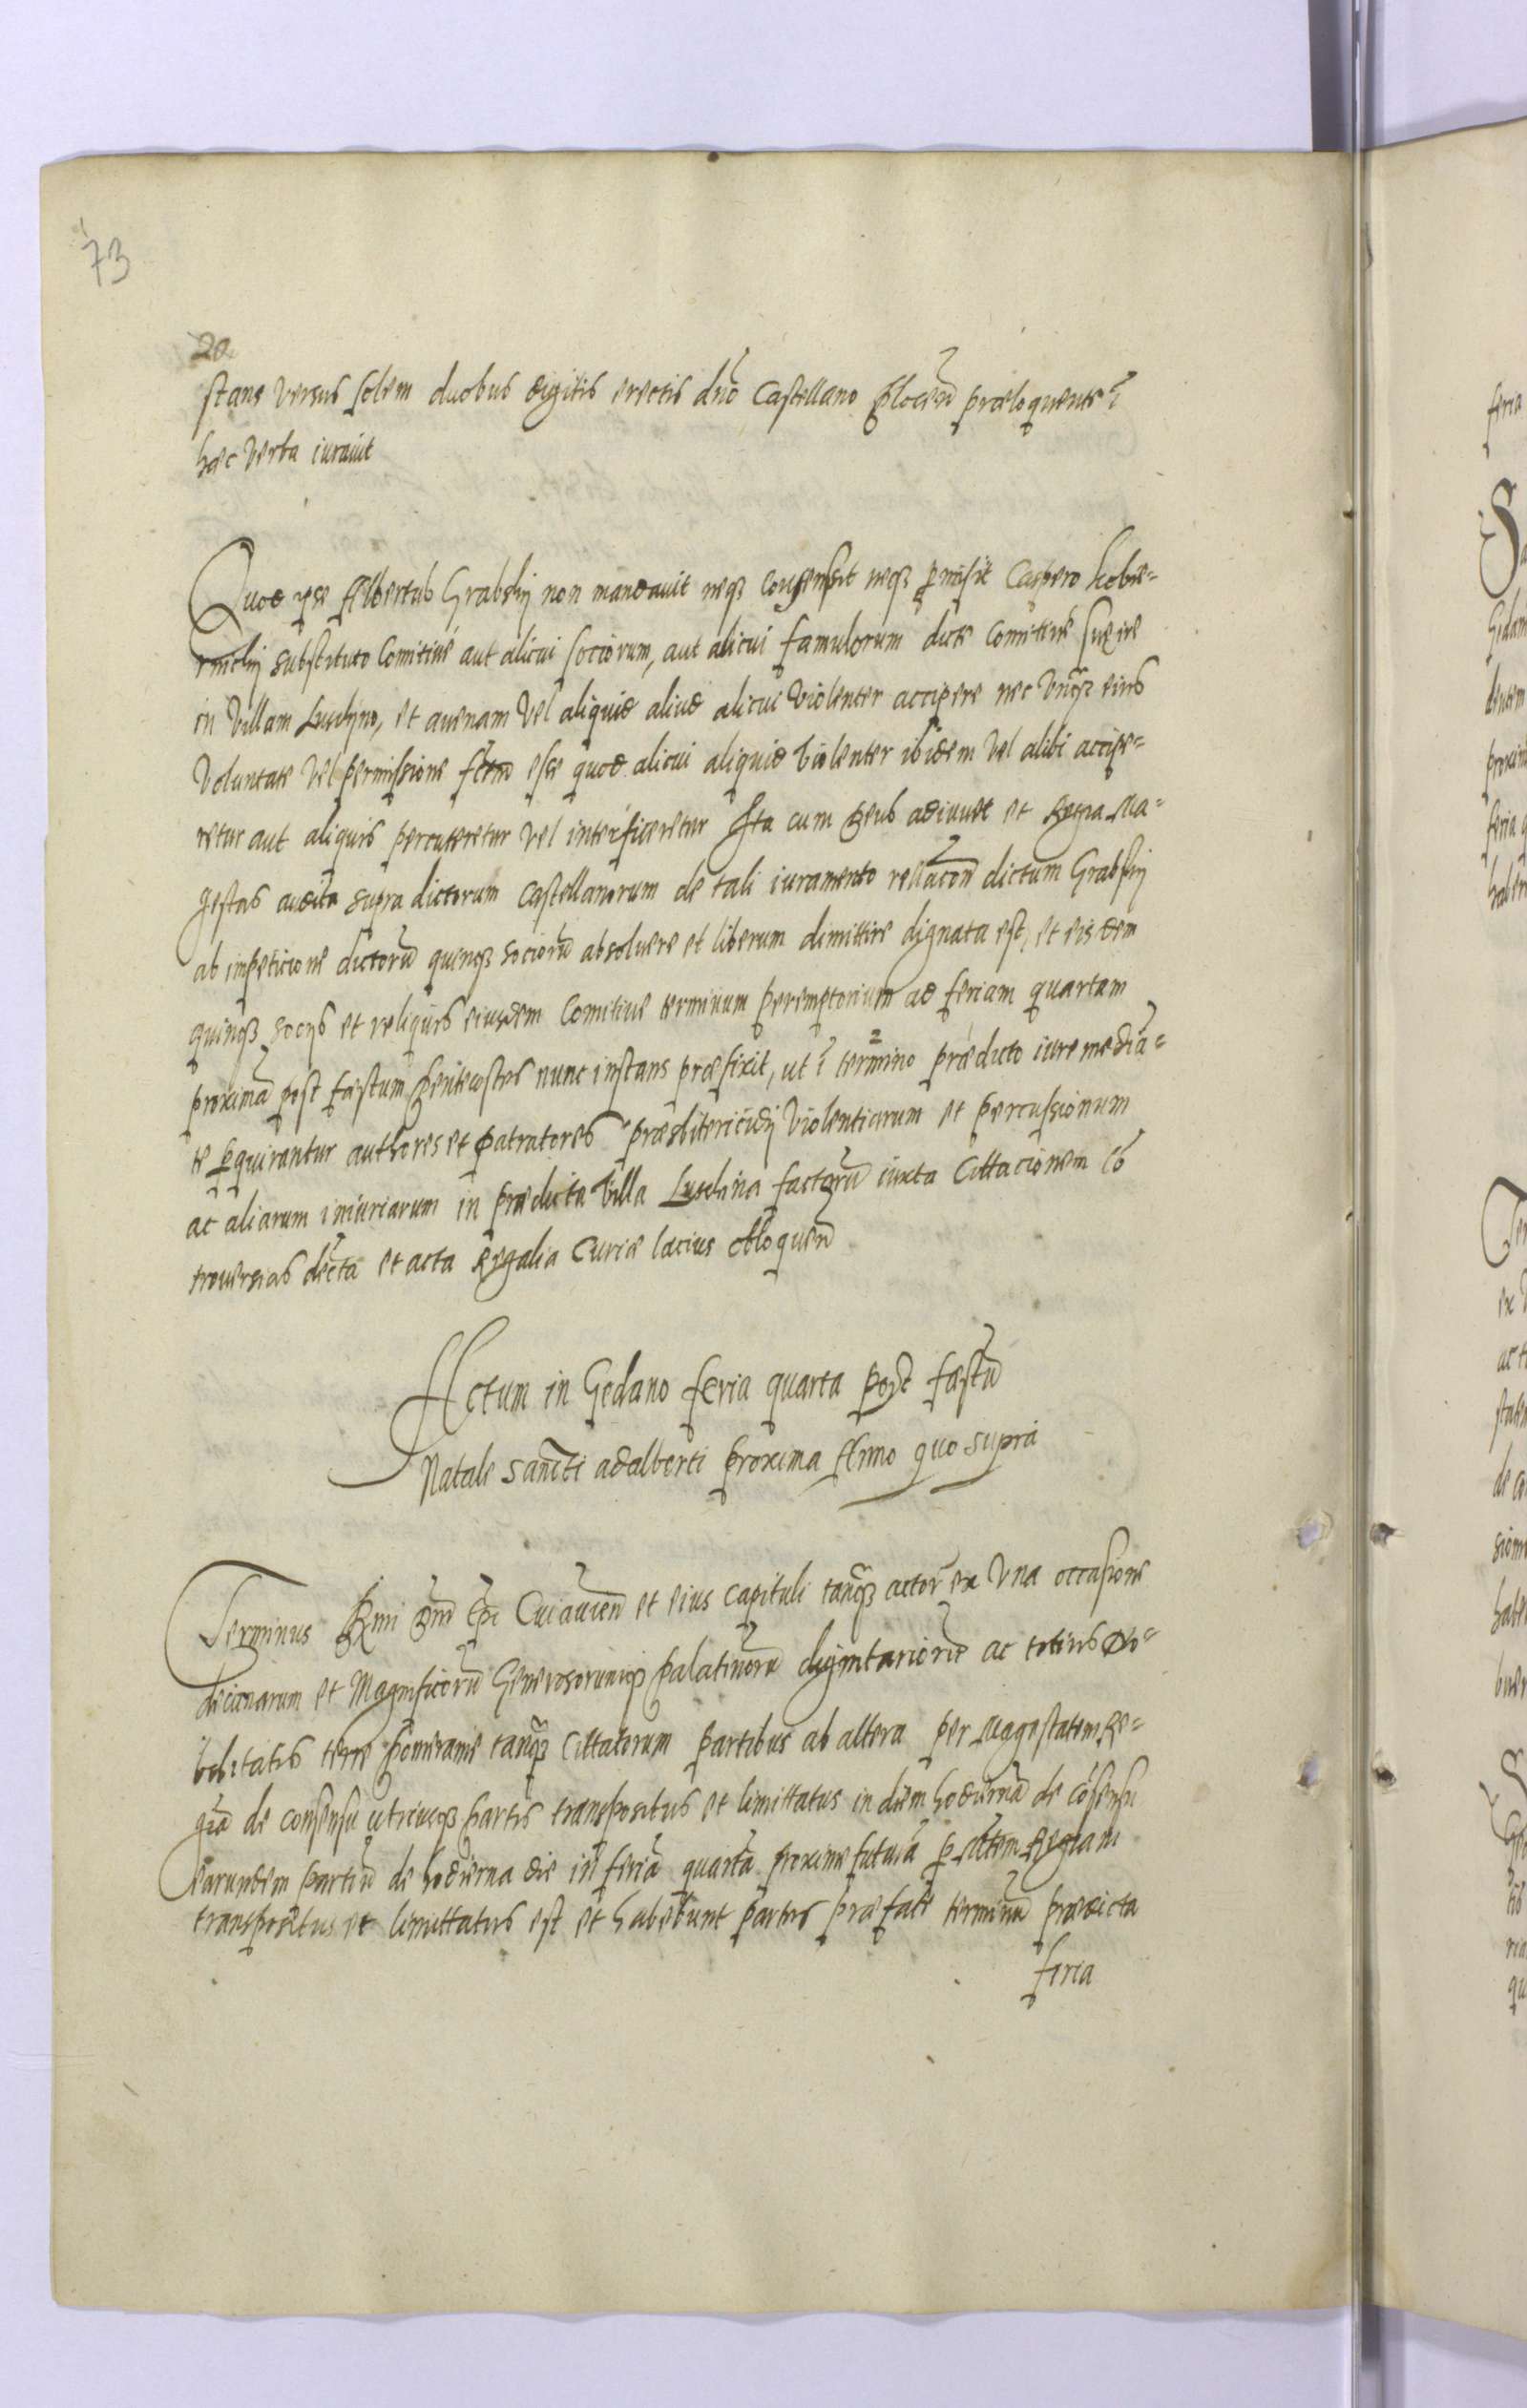 73
20
stans versus solem duobus digitis erectis dno Castellano Plocen præloquente ĩ
hæc verba iuravit
Quod ipse Albertus Grabskij non mandavit neqz consensit neqz pmisit Caspero kobie=
rniclij substituto Comitive aut alicui sociorum, aut alicui famulorum dicte comitive sue ire
in villam Lusclyno, et avenam vel aliquid aliud alicui violenter accipere nec unqz eius
voluntate vel permissione fctm esse quod alicui aliquid violenter ibidem vel alibi accipe=
retur aut aliquis percuteretur vel interficeretur Ita eum Deus adiuvet et Regia Ma=
gestas audita supra dictorum Castellanorum de tali iuramento rellacõn dictum Grabskij
ab impeticione dictorũ quinqz sociorũ absolvere et liberum dimittere dignata est, et eisdem
quinqz socijs et reliquis eiusdem Comitive terminum peremptorium ad feriam quartam
proximã post fæstum Pentecostes nunc instans præfixit, ut ĩ termino prædicto iure mediã=
te pquirantur authores et patratores præsbitericidij violentiarum et percussionum
ac aliarum iniuriarum in prædicta villa Lusclina factarũ iuxta Cittacionem cõ
troversias decta et acta Regalia Curiæ lacius obloquen
Actum in Gedano feria quarta post fæstũ
Natale Sancti adalberti proxima Anno quo supra
Terminus Rmi Dni Epi Cuiavien et eius Capituli tanqz actor ex una occasione
decimarum et Magnificorũ Generosorumqz palatinorũ dignitariorũ ac totius No=
bilitatis terre Pomeranie tanqz Cittatorum partibus ab altera per Magestatem Re=
giã de consensu utriusqz partis transpositus et limittatus in diem hodiernã de cõsensu
earundem partiũ de hodierna die in feriã quartã proxime futurã p Mtem Regiam
transpositus et limittatus est et habebunt partes præfate terminũ prædicta
feria